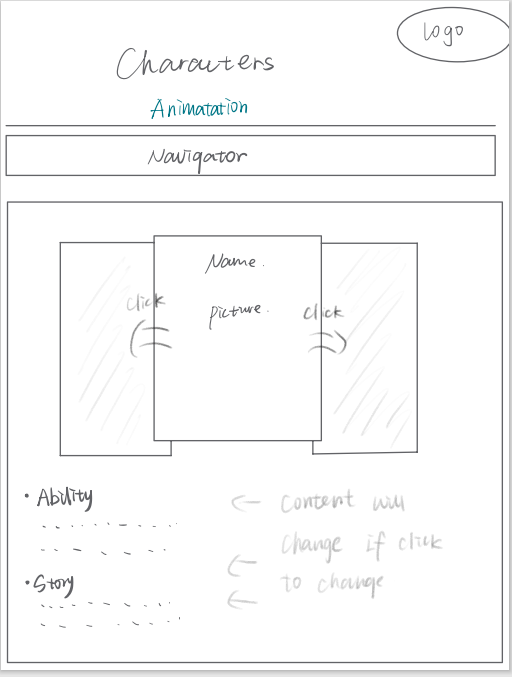 Logo
Characters
Animatation
Navigator
Name.
Picture.
Click
Click
• Ability
• Story
← Content will
change if click
← to change
←